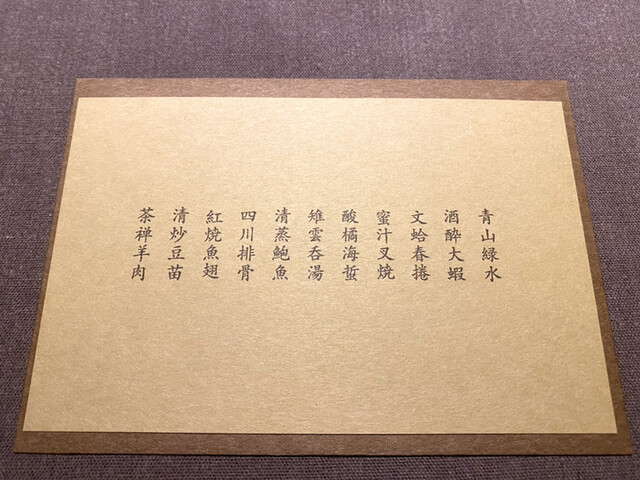 青山緑水
酒酔大蝦
文蛤春捲
蜜汁叉焼
酸橘海蜇
雉雲呑湯
清蒸鮑魚
四川排骨
紅焼魚翅
清炒豆苗
茶禅羊肉